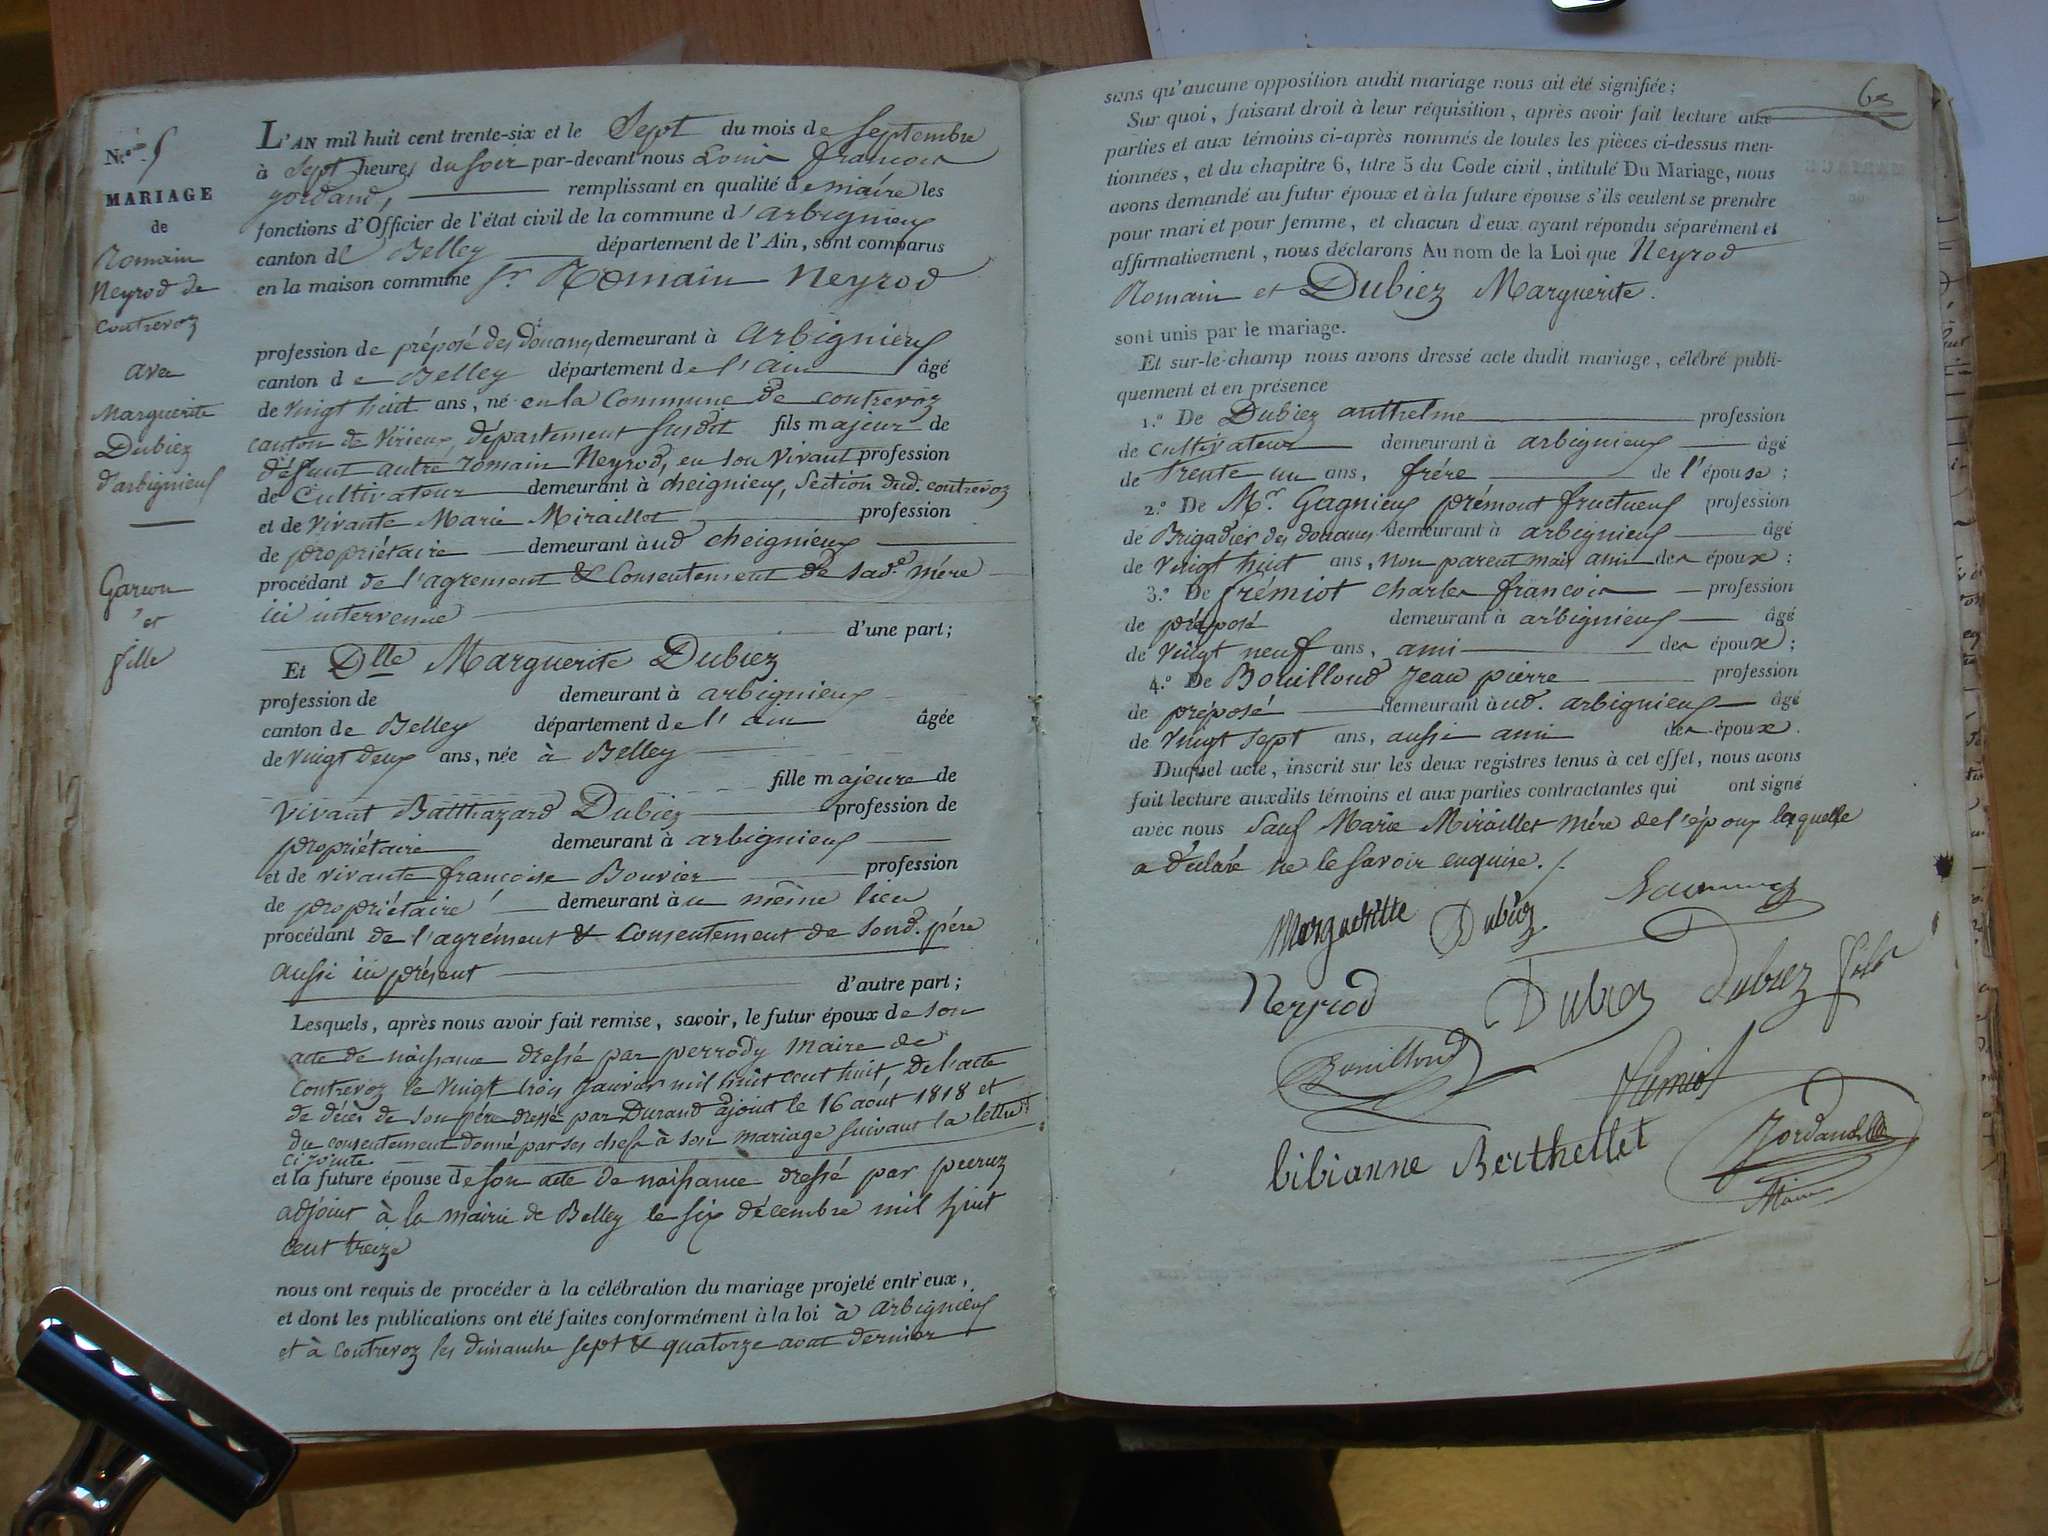 N.º 5
MARIAGE
de
Romain
Neyrod de
Contrevoz
avec
Marguerite
Dubiez
d'arbignieux
Garcon
et
fille
L'AN mil huit cent trente-six et le Sept du mois de Septembre
à Sept heures du soir par-devant nous Louis françois
jordand, remplissant en qualité de maire les
fonctions d'Officier de l'état civil de la commune d'arbignieux
canton de Belley département de l'Ain, sont comparus
en la maison commune Sr Romain Neyrod
profession de préposé des douanes demeurant à Arbignieux
canton de Belley département de l'ain âgé
de vingt huit ans, né en la Commune de contrevoz
canton de Virieux département susdit fils majeur de
défunt autre romain Neyrod, en son vivant profession
de Cultivateur demeurant à cheignieux, Section dud. contrevoz
et de vivante Marie Miraillot profession
de propriétaire demeurant à ud cheignieux
procédant de l'agrement & Consentement de sad.e mére
ici intervenue
d'une part;
Et Dlle Marguerite Dubiez
profession de demeurant à arbignieux
canton de Belley département de l'ain âgée
de vingt deux ans, née à Belley
fille majeure de
vivant Balthazard Dubiez profession de
propriétaire demeurant à arbignieux
et de vivante françoise Bouvier profession
de propriétaire demeurant à u même lieu
procédant de l'agrément & Consentement de sond. pére
aussi ici présent
d'autre part;
Lesquels, après nous avoir fait remise, savoir, le futur époux de son
acte de naissance dressé par perrody Maire de
Contrevoz le vingt trois janvier mil huit cent huit, de l'acte
de décès de son pére dressé par Durand adjoint le 16 août 1818 et
du consentement donné par ses chefs à son mariage suivant la lettre
ci jointe
et la future épouse de son acte de naissance dressé par
adjoint à la mairie de Belley le six décembre mil huit
cent treize
nous ont requis de procéder à la célébration du mariage projeté entr'eux,
et dont les publications ont été faites conformément à la loi à arbignieux
et à Contrevoz les dimanche sept & quatorze aout dernier
68
sans qu'aucune opposition audit mariage nous ait été signifiée;
Sur quoi, faisant droit à leur réquisition, après avoir fait lecture aux
parties et aux témoins ci-après nommés de toutes les pièces ci-dessus men-
tionnées, et du chapitre 6, titre 5 du Code civil, intitulé Du Mariage, nous
avons demandé au futur époux et à la future épouse s'ils veulent se prendre
pour mari et pour femme, et chacun d'eux ayant répondu séparément et
affirmativement, nous déclarons Au nom de la Loi que Neyrod
Romain et Dubiez Marguerite.
sont unis par le mariage.
Et sur-le-champ nous avons dressé acte dudit mariage, célébré publi-
quement et en présence
1.º De Dubiez anthelme profession
de cultivateur demeurant à arbignieux âgé
de trente un ans, frére de l'épouse;
2.º De Mr. Gagnieux prémont fructueux profession
de Brigadier des douanes demeurant à arbignieux âgé
de vingt huit ans, non parent mais ami des époux;
3.º De frémiot charles françois profession
de préposé demeurant à arbignieux âgé
de vingt neuf ans, ami des époux;
4.º De Bouillond jean pierre profession
de préposé demeurant à ud. arbignieux âgé
de vingt sept ans, aussi ami des époux.
Duquel acte, inscrit sur les deux registres tenus à cet effet, nous avons
fait lecture auxdits témoins et aux parties contractantes qui ont signé
avec nous Sauf Marie Miraillet mére de l'époux laquelle
a déclaré ne le savoir enquise./.
Margueritte Dubiez
Neyrod Dubiez Dubiez fils
Bouillond fremiot
bibianne Berthellet Jordand
Maire